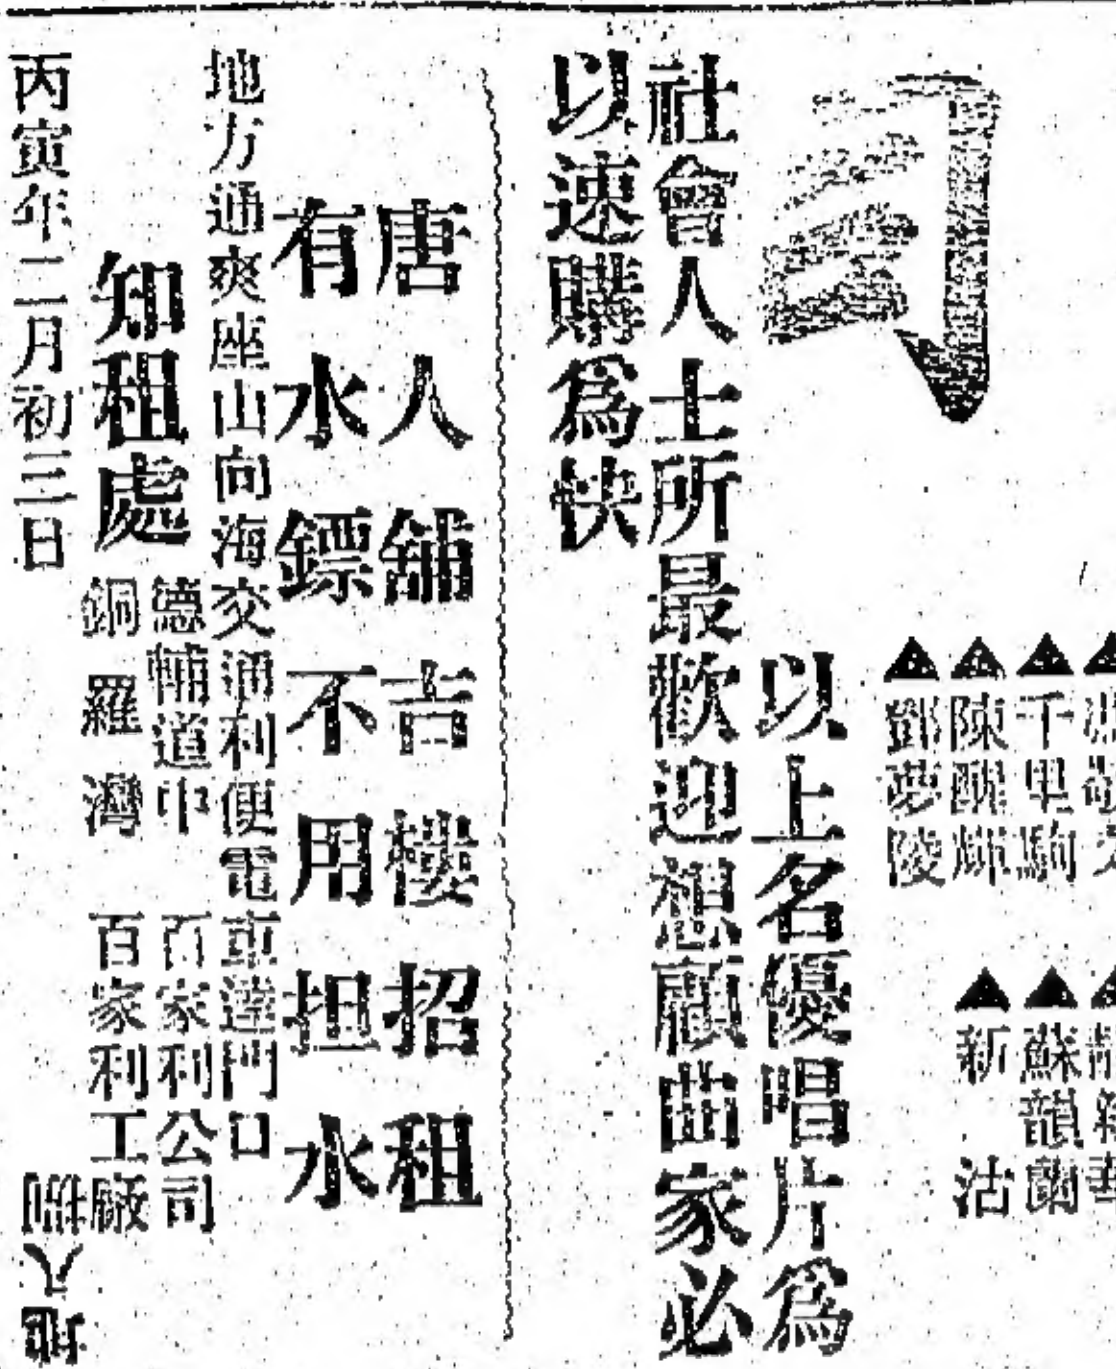 司
▲千里駒
▲陳醒輝
▲鄧夢陵
▲蘇韻蘭
▲新沽
以上名優唱片為
社會人士所最歡迎想顧曲家必
以速購為快
唐人舖吉樓招租
有水鏢不用担水
地方通爽座山向海交通利便電車達門口
德輔道中百家利公司
知租處
銅羅灣百家利工廠
丙寅年二月初三日